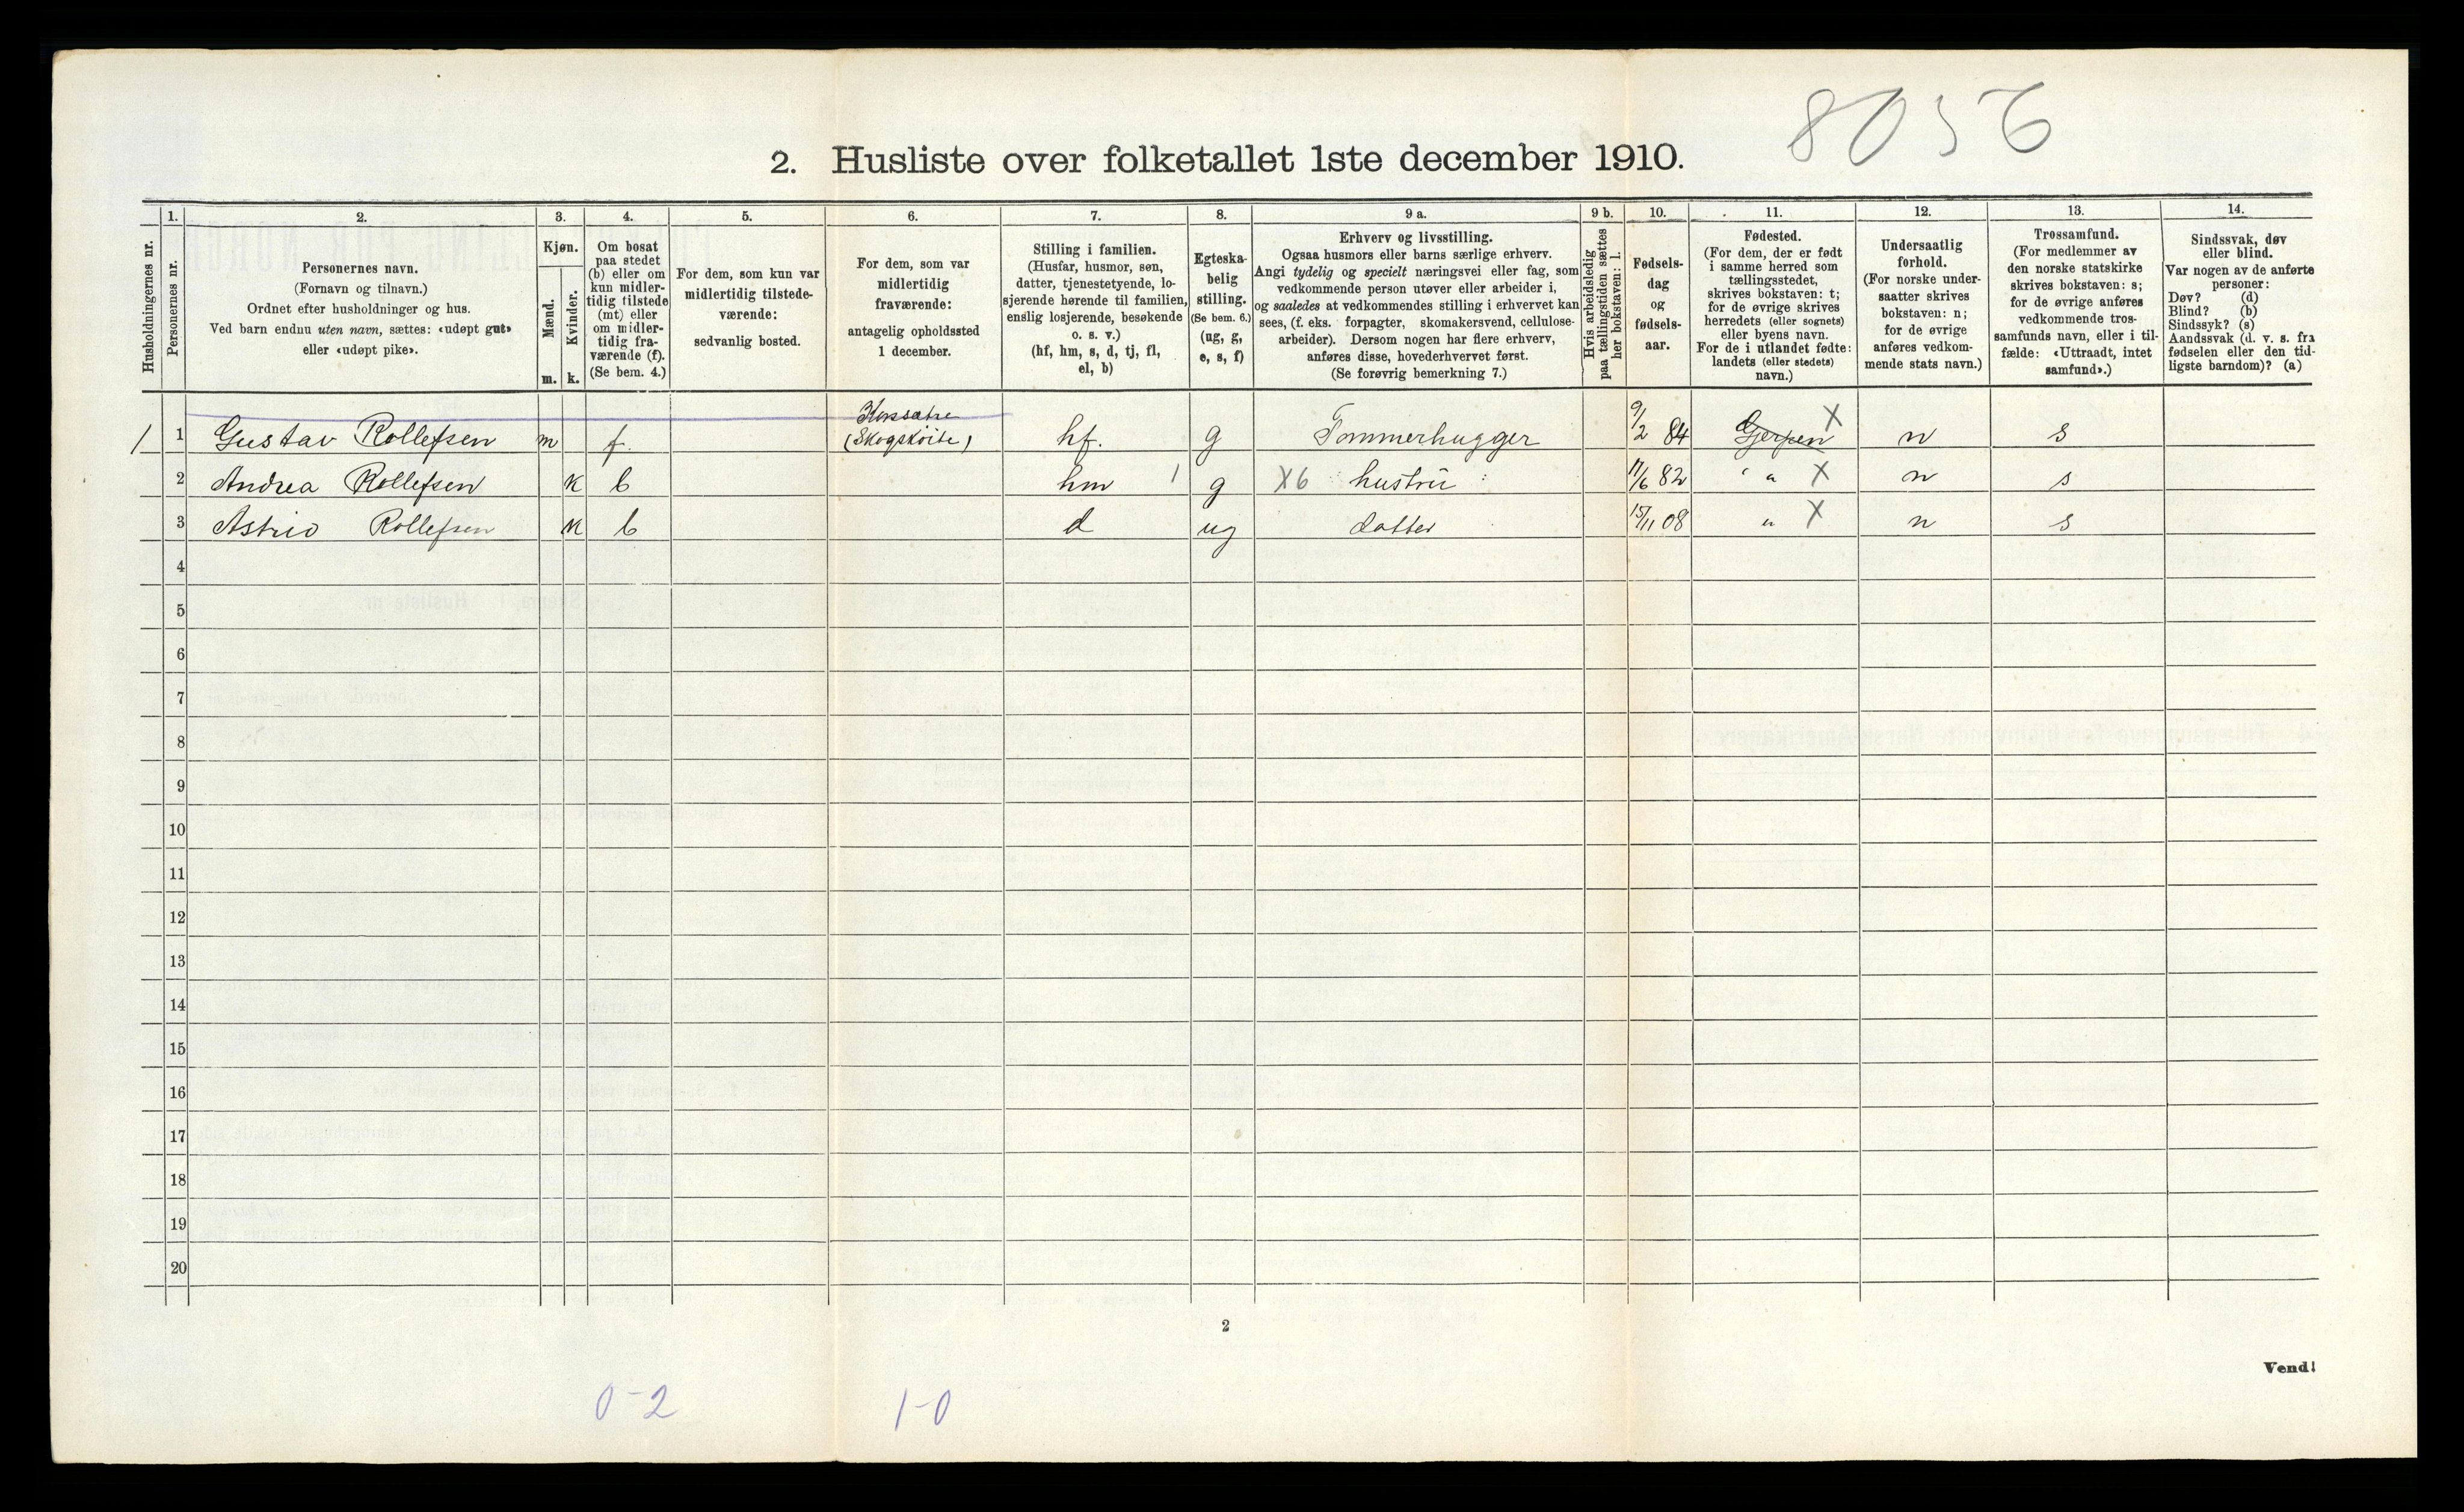 8056
2. Husliste over folketallet 1ste december 1910.
Husholdningernes nr.
1.
Personernes nr.
2.
Personernes navn.
(Fornavn og tilnavn.)
Ordnet efter husholdninger og hus.
Ved barn endnu uten navn, sættes: «udøpt gut»
eller «udøpt pike».
3.
Kjøn.
Mænd.
m.
Kvinder.
k.
4.
Om bosat
paa stedet
(b) eller om
kun midler-
tidig tilstede
(mt) eller
om midler-
tidig fra-
værende (f).
(Se bem. 4.)
5.
For dem, som kun var
midlertidig tilstede-
værende:
sedvanlig bosted.
6.
For dem, som var
midlertidig
fraværende:
antagelig opholdssted
1 december.
7.
Stilling i familien.
(Husfar, husmor, søn,
datter, tjenestetyende, lo-
sjerende hørende til familien,
enslig losjerende, besøkende
o. s. v.)
(hf, hm, s, d, tj, fl,
el, b)
8.
Egteska-
belig
stilling.
(Se bem. 6.)
(ug, g,
e, s, f)
9 a.
Erhverv og livsstilling.
Ogsaa husmors eller barns særlige erhverv.
Angi tydelig og specielt næringsvei eller fag, som
vedkommende person utøver eller arbeider i,
og saaledes at vedkommendes stilling i erhvervet kan
sees, (f. eks. forpagter, skomakersvend, cellulose-
arbeider). Dersom nogen har flere erhverv,
anføres disse, hovederhvervet først.
(Se forøvrig bemerkning 7.)
9 b.
Hvis arbeidsledig
paa tællingstiden sættes
her bokstaven: l.
10.
Fødsels-
dag
og
fødsels-
aar.
11.
Fødested.
(For dem, der er født
i samme herred som
tællingsstedet,
skrives bokstaven: t;
for de øvrige skrives
herredets (eller sognets)
eller byens navn.
For de i utlandet fødte:
landets (eller stedets)
navn.)
12.
Undersaatlig
forhold.
(For norske under-
saatter skrives
bokstaven: n;
for de øvrige
anføres vedkom-
mende stats navn.)
13.
Trossamfund.
(For medlemmer av
den norske statskirke
skrives bokstaven: s;
for de øvrige anføres
vedkommende tros-
samfunds navn, eller i til-
fælde: «Uttraadt, intet
samfund».)
14.
Sindssvak, døv
eller blind.
Var nogen av de anførte
personer:
Døv? (d)
Blind? (b)
Sindssyk? (s)
Aandssvak (d. v. s. fra
fødselen eller den tid-
ligste barndom)? (a)
Korssætre
1 1 Gustav Rollefsen m f. (Skogskoite) hf. g Tømmerhugger 9/2 84 Gjerpen X n s
2 Andrea Rollefsen K b hm 1 g X6 hustru 11/6 82 " X n s
3 Astrid Rollefsen K b d ug datter 15/11 08 " X n s
4
5
6
7
8
9
10
11
12
13
14
15
16
17
18
19
20
2
Vend!
0-2 1-0